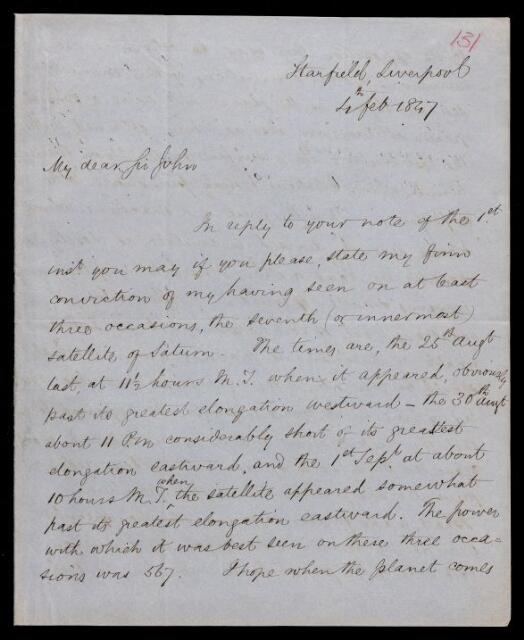 131
Starfield, Liverpool
4th feb 1847
My dear Sir John
In reply to your note of the 1st
inst you may if you please, state my firm
conviction of my having seen on at least
three occasions, the seventh (or innermost)
satellite of Saturn. The times are, the 25th Augt
last, at 11½ hours M.T. when it appeared, obviously
past its greatest elongation westward – the 30th Augt
about 11 P.m considerably short of its greatest
elongation eastward, and the 1st Sept. at about
10 hours M.T. when the satellite appeared somewhat
past its greatest elongation eastward. The power
with which it was best seen on these three occa=
sions was 567. I hope when the planet comes